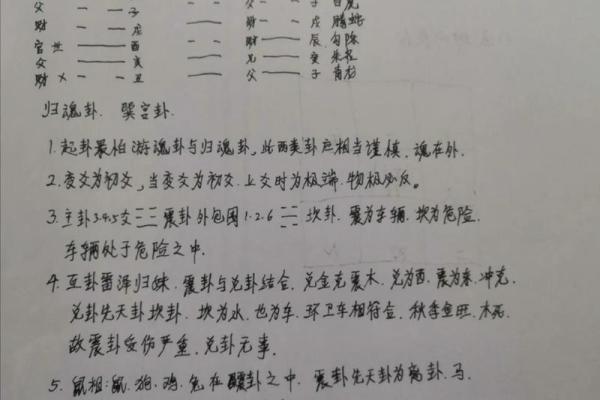 父 子 父 子 白虎
财 戌 财 戌 螣蛇
官 世 酉 财 辰 勾陈
父 亥 兄 寅 朱雀
财 × 丑 父 子 青龙
归魂卦. 巽宫卦.
1. 起卦最怕游魂卦与归魂卦, 此两类卦应相当谨慎. 魂在外.
2. 变爻为初爻, 当变爻为初爻. 上爻时为极端. 物极必反。
3. 主卦3.4.5爻 震卦外包围1.2.6 坎卦. 震为车辆. 坎为危险.
车辆处于危险之中.
4. 互卦雷泽归妹. 震卦与兑卦结合, 兑金克震木, 兑为西. 震为东. 冲克.
兑卦先天卦坎卦. 坎为水. 也为车. 环卫车相符合. 秋季金旺. 木死.
故震卦受伤严重. 兑卦无事.
5. 鼠相: 鼠. 狗. 鸡. 兔在震卦之中. 震卦先天卦为离卦. 马.